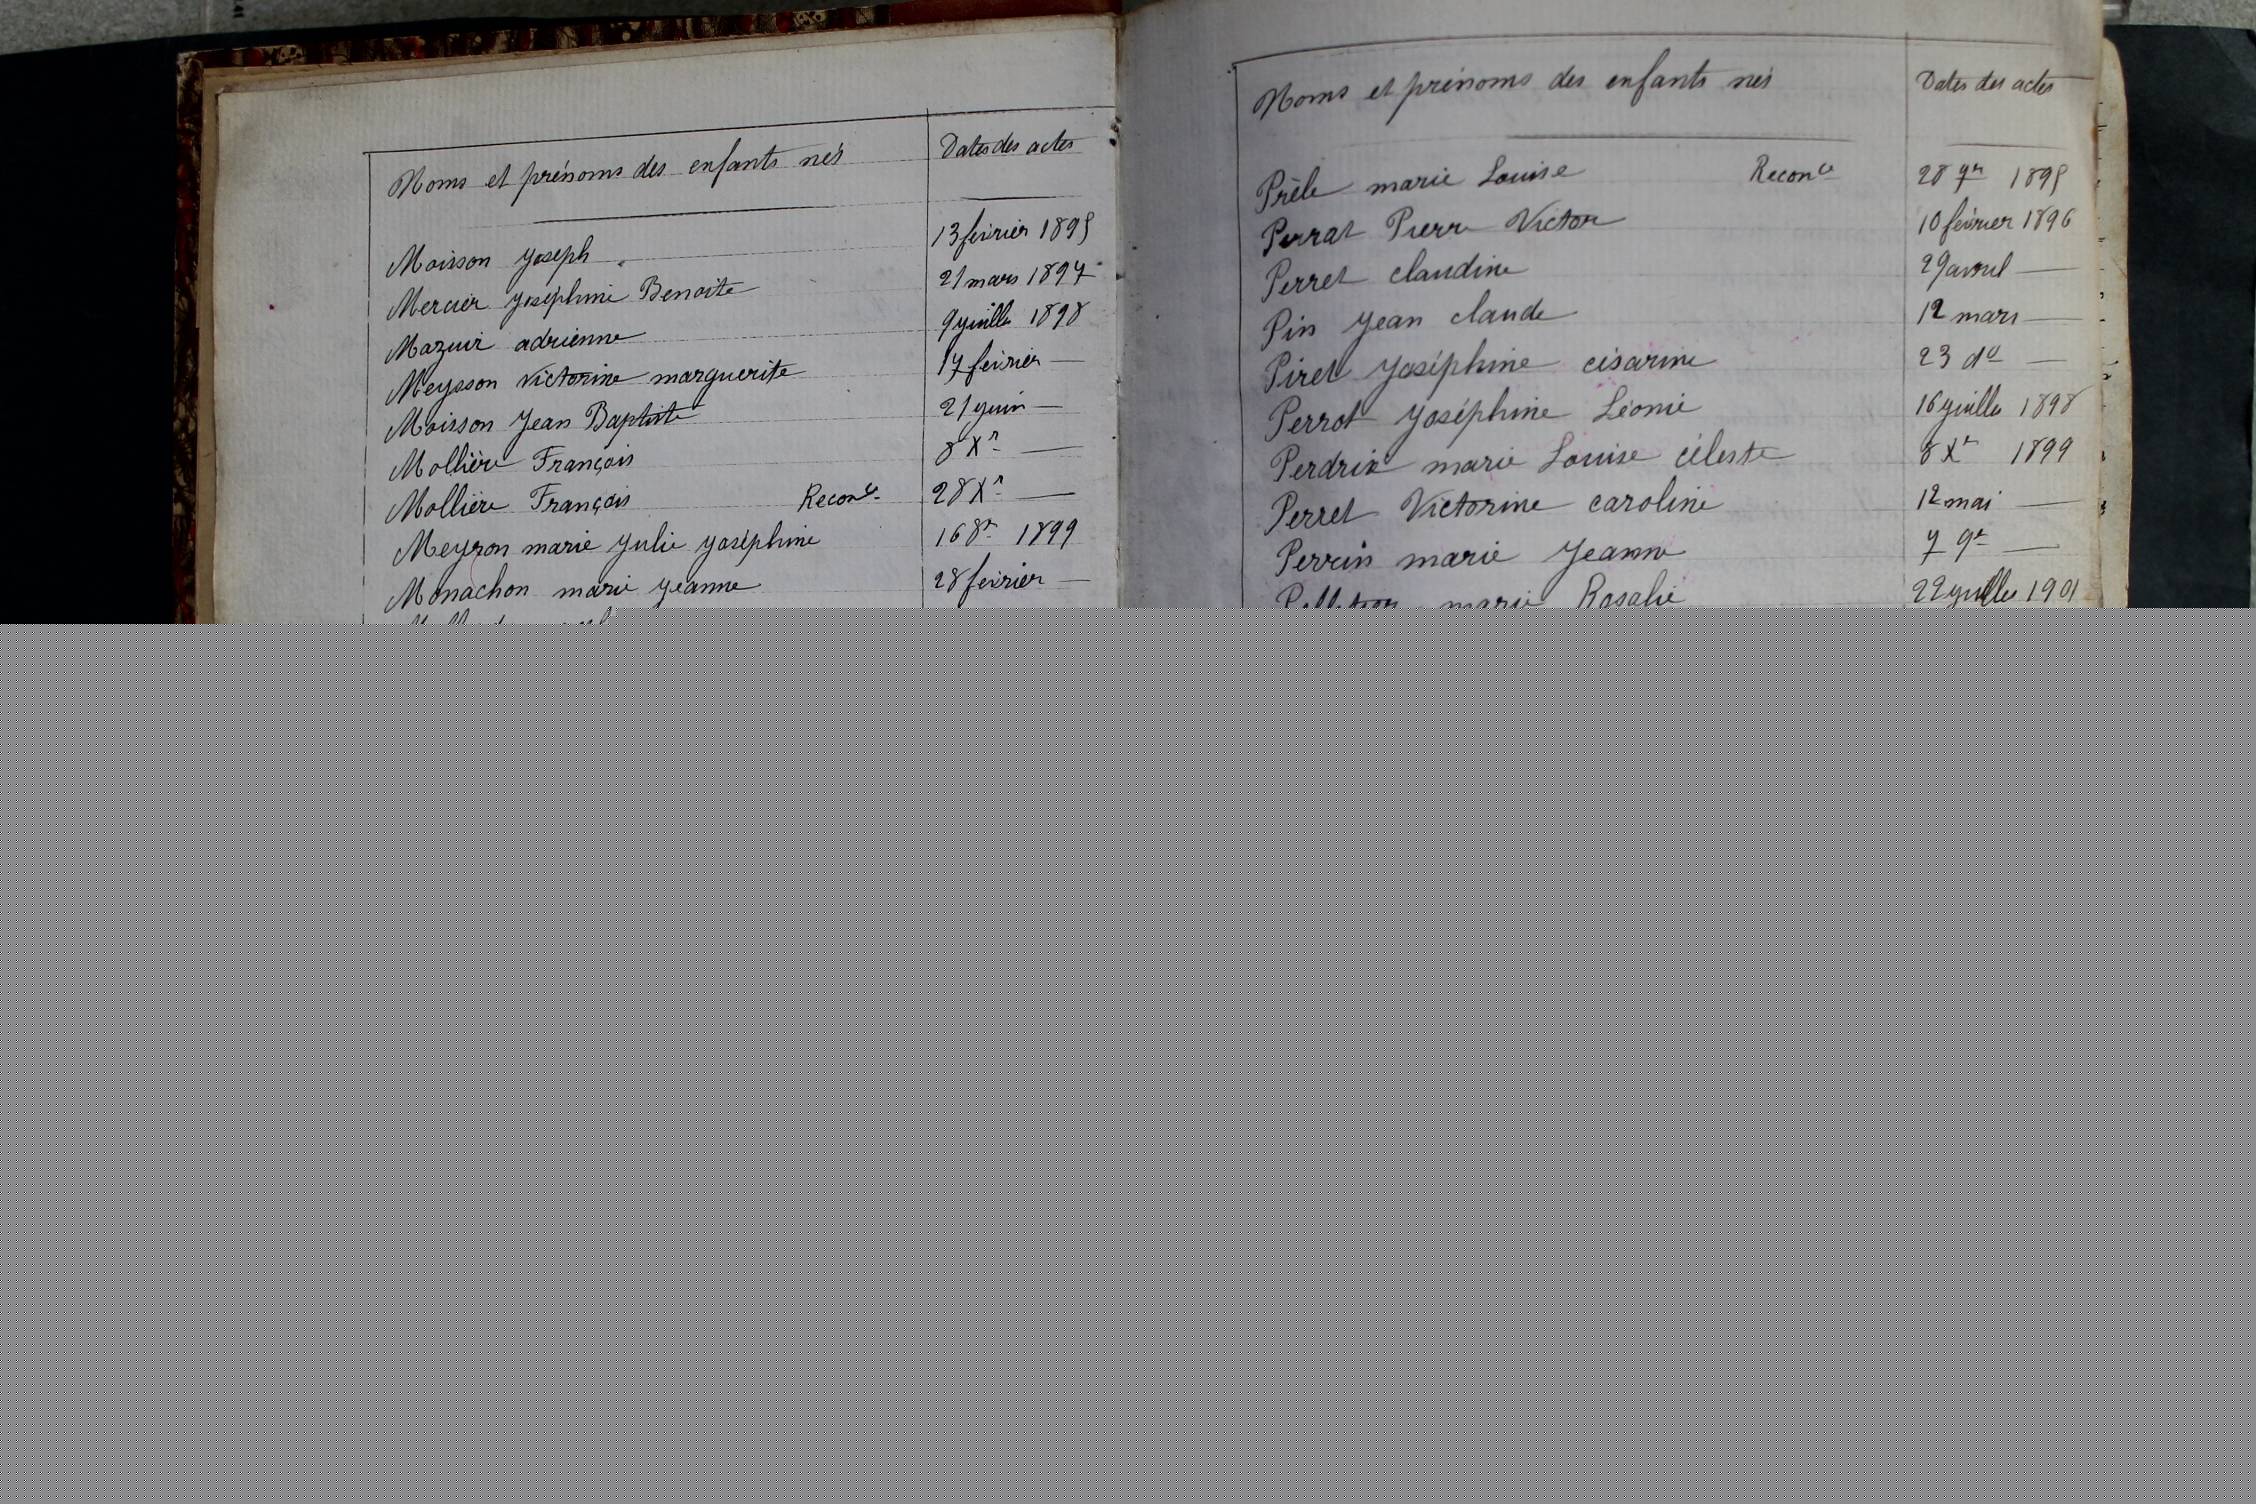 Noms et prénoms des enfants nés Dates des actes
Moisson Joseph 13 février 1895
Mercier Joséphine Benoite 21 mars 1897
Mazuir adrienne 9 juille 1898
Meysson victorine marguerite 17 février —
Moisson Jean Baptiste 21 juin —
Mollière François 8 Xr —
Mollière François Reconce 28 Xr —
Meyron marie Julie Joséphine 16 8r 1899
Monachon marie Jeanne 28 février —
Noms et prénoms des enfants nés Dates des actes
Prèle marie Louise Reconce 28 7r 1895
Perrat Pierre Victor 10 février 1896
Perret claudine 29 avril —
Pin Jean claude 12 mars —
Piret Joséphine césarine 23 do —
Perrot Joséphine Léonie 16 juille 1898
Perdrix marie Louise céleste 8 Xr 1899
Perret Victorine caroline 12 mai —
Perrin marie Jeanne 7 9r —
marie Rosalie 22 juillet 1901